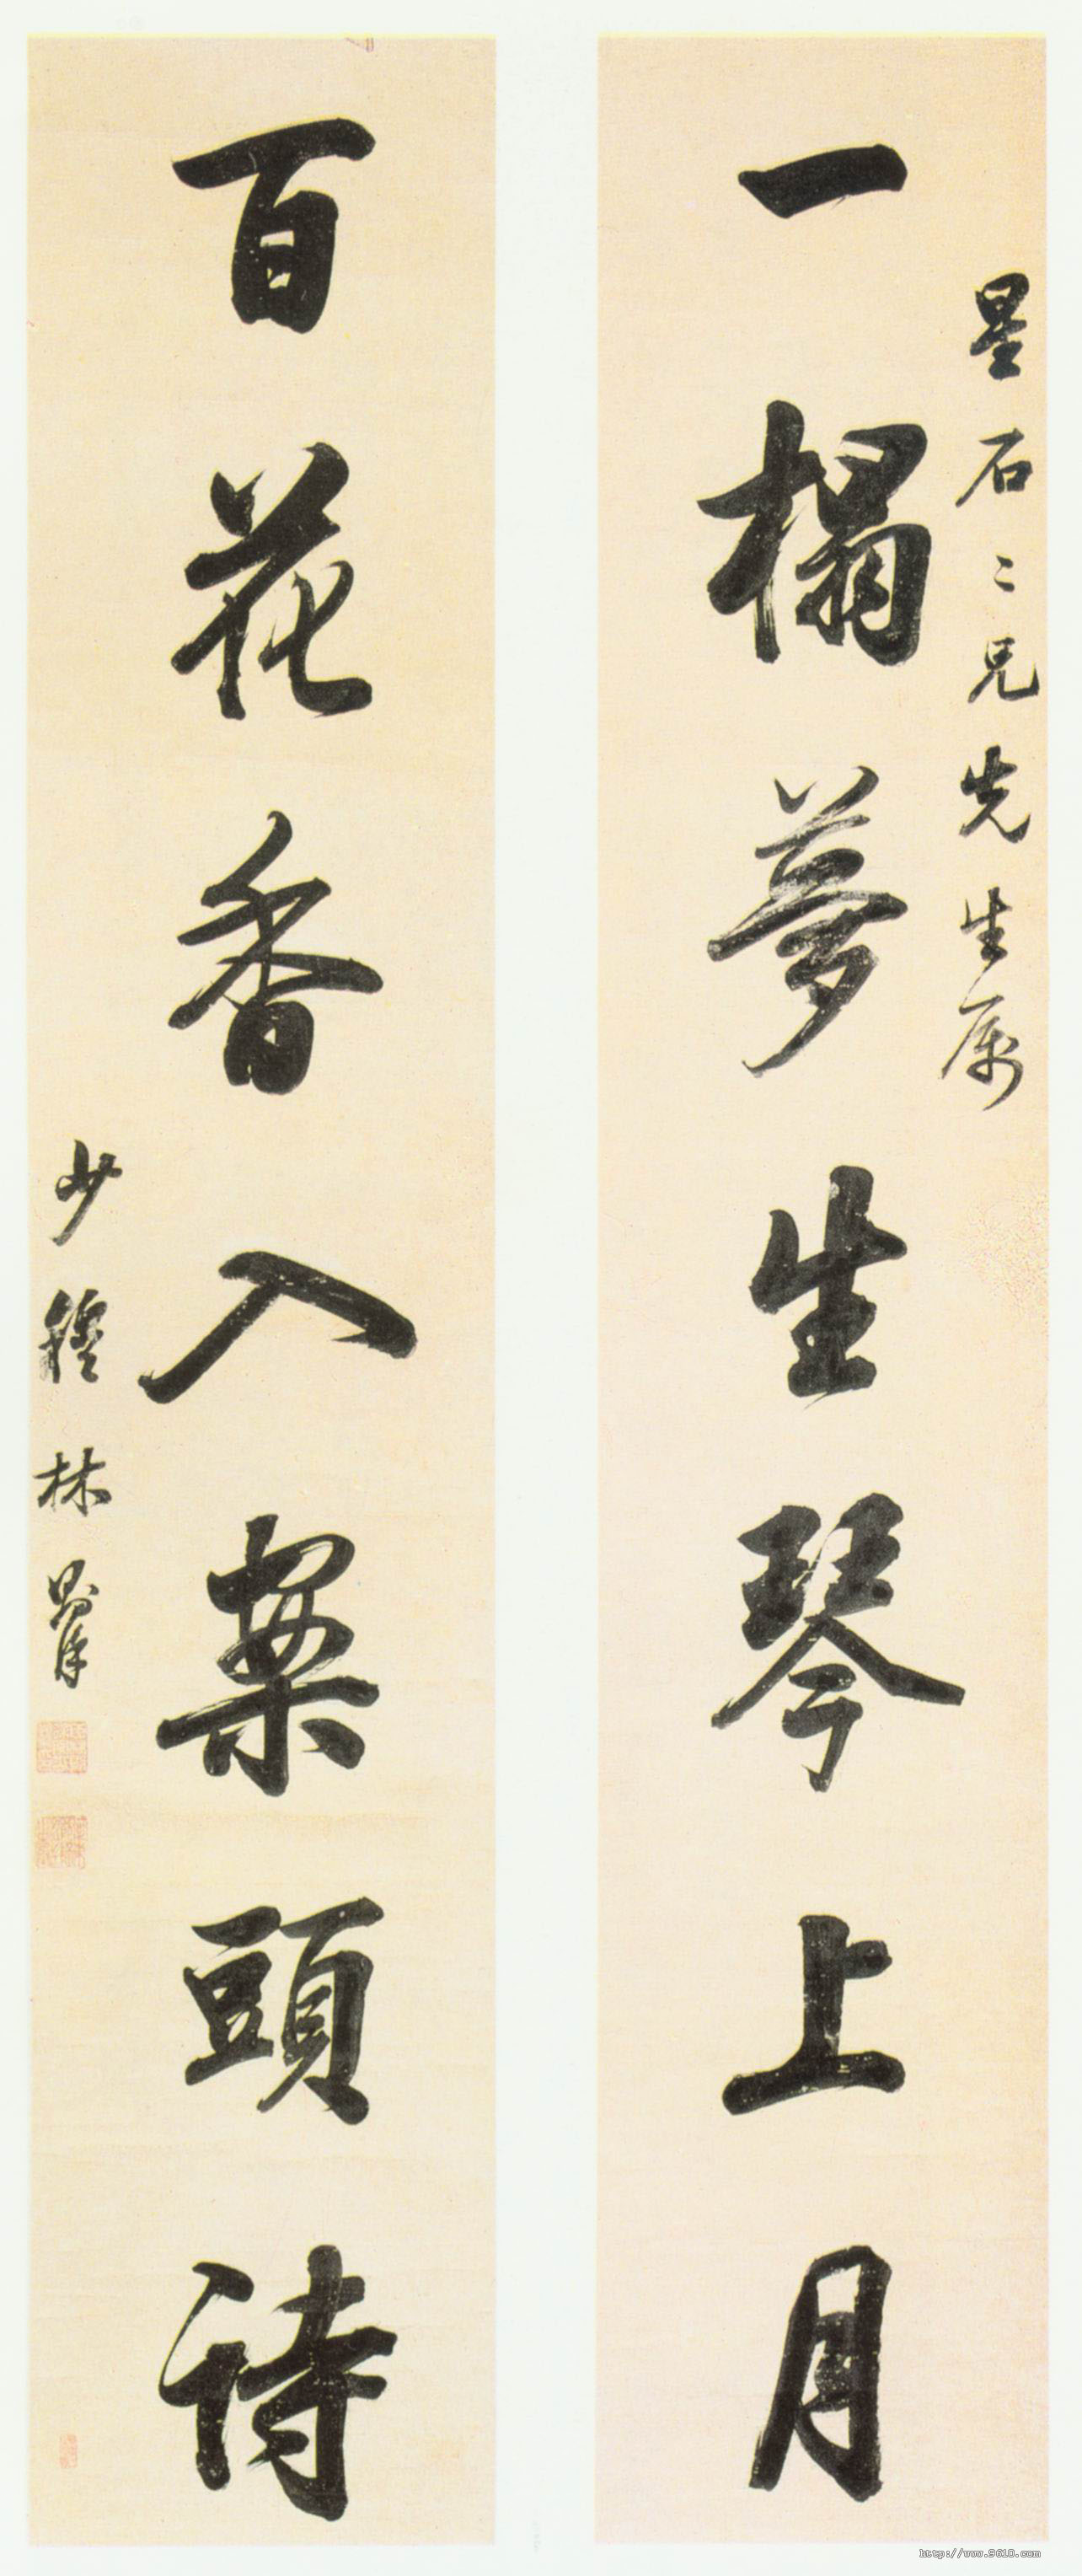 星石二兄先生属
一榻夢生琴上月
百花香入案頭詩
少穆林則徐
http://www.9610.com